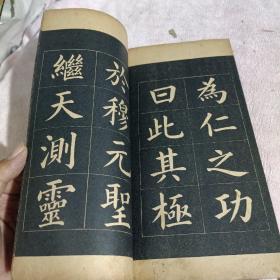 為仁之功
曰此其極
於穆元聖
繼天測靈